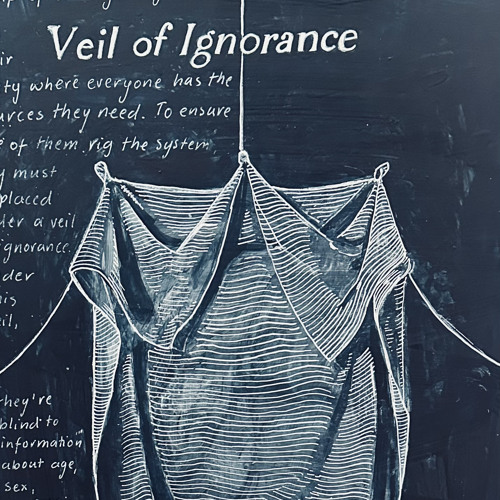 Veil of Ignorance
ty where everyone has the
urces they need. To ensure
of them rig the system
y must
placed
der a veil
ignorance.
der
his
eil,
they're
blind to
information
about age,
sex,